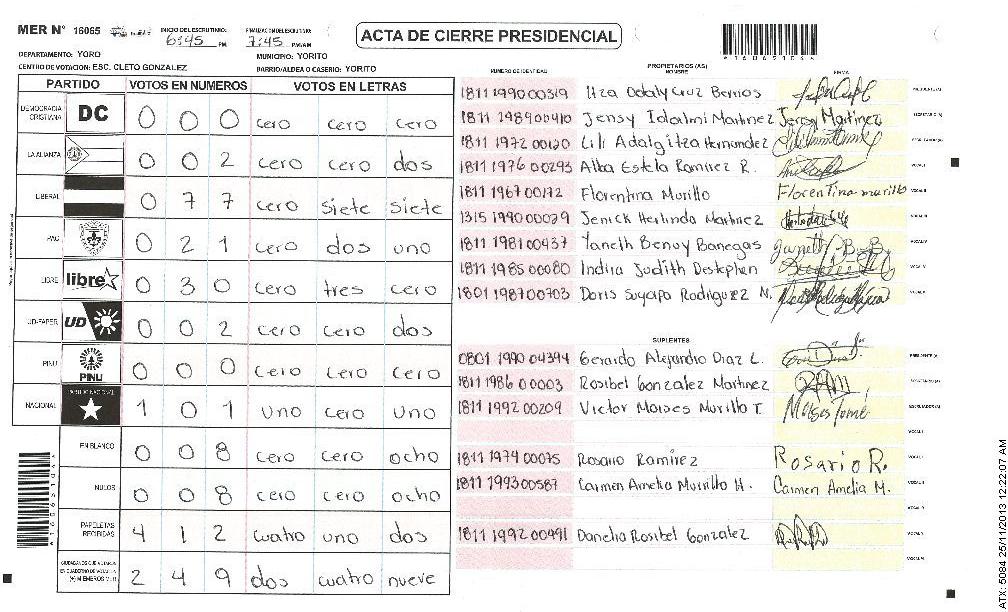 MER N° 16065 INICIO DEL ESCRUTINIO: 6:45 PM FINALIZACION DEL ESCRUTINIO: 7:45 P.M/AM
ACTA DE CIERRE PRESIDENCIAL
DEPARTAMENTO: YORO MUNICIPIO: YORITO
CENTRO DE VOTACION: ESC. CLETO GONZALEZ BARRIO/ALDEA O CASERIO: YORITO
PARTIDO VOTOS EN NUMEROS VOTOS EN LETRAS
DEMOCRACIA CRISTIANA DC 0 0 0 cero cero cero
LA ALIANZA 0 0 2 cero cero dos
LIBERAL 0 7 7 cero siete siete
PAC 0 2 1 cero dos uno
LIBRE libre 0 3 0 cero tres cero
UD-FAPER UD 0 0 2 cero cero dos
PINU PINU 0 0 0 cero cero cero
NACIONAL PARTIDO NACIONAL 1 0 1 uno cero uno
EN BLANCO 0 0 8 cero cero ocho
NULOS 0 0 8 cero cero ocho
PAPELETAS RECIBIDAS 4 1 2 cuatro uno dos
CIUDADANOS QUE VOTARON EN CUADERNO DE VOTACION (+) MIEMBROS MER 2 4 9 dos cuatro nueve
NUMERO DE IDENTIDAD PROPIETARIOS (AS) NOMBRE FIRMA
1811 1990 00319 Itza Odaly Cruz Berrios PRESIDENTE (A)
1811 1989 00410 Jensy Idalmi Martinez Jensy Martinez SECRETARIO (A)
1811 1972 00120 Lili Adalgitza Hernandez
1811 1976 00293 Alba Estela Ramirez R. VOCAL I
1811 1967 00172 Florentina Murillo Florentina murillo VOCAL II
1315 1990 00029 Jenick Herlinda Martinez VOCAL III
1811 1981 00437 Yaneth Benuy Banegas VOCAL IV
1811 1985 00080 Indira Judith Destephen VOCAL V
1801 1987 00703 Doris Suyapa Rodriguez N.
SUPLENTES
0801 1990 04394 Gerardo Alejandro Diaz L. PRESIDENTE (A)
1811 1986 00003 Rosibel Gonzalez Martinez SECRETARIO (A)
1811 1992 00209 Victor Moises Murillo T. Moises Tomé ESCRUTADOR (A)
1811 1974 00075 Rosario Ramirez Rosario R.
1811 1993 00587 Carmen Amelia Murillo H. Carmen Amelia M.
1811 1992 00491 Danelia Rosibel Gonzalez
ATX: 5084 25/11/2013 12:22:07 AM